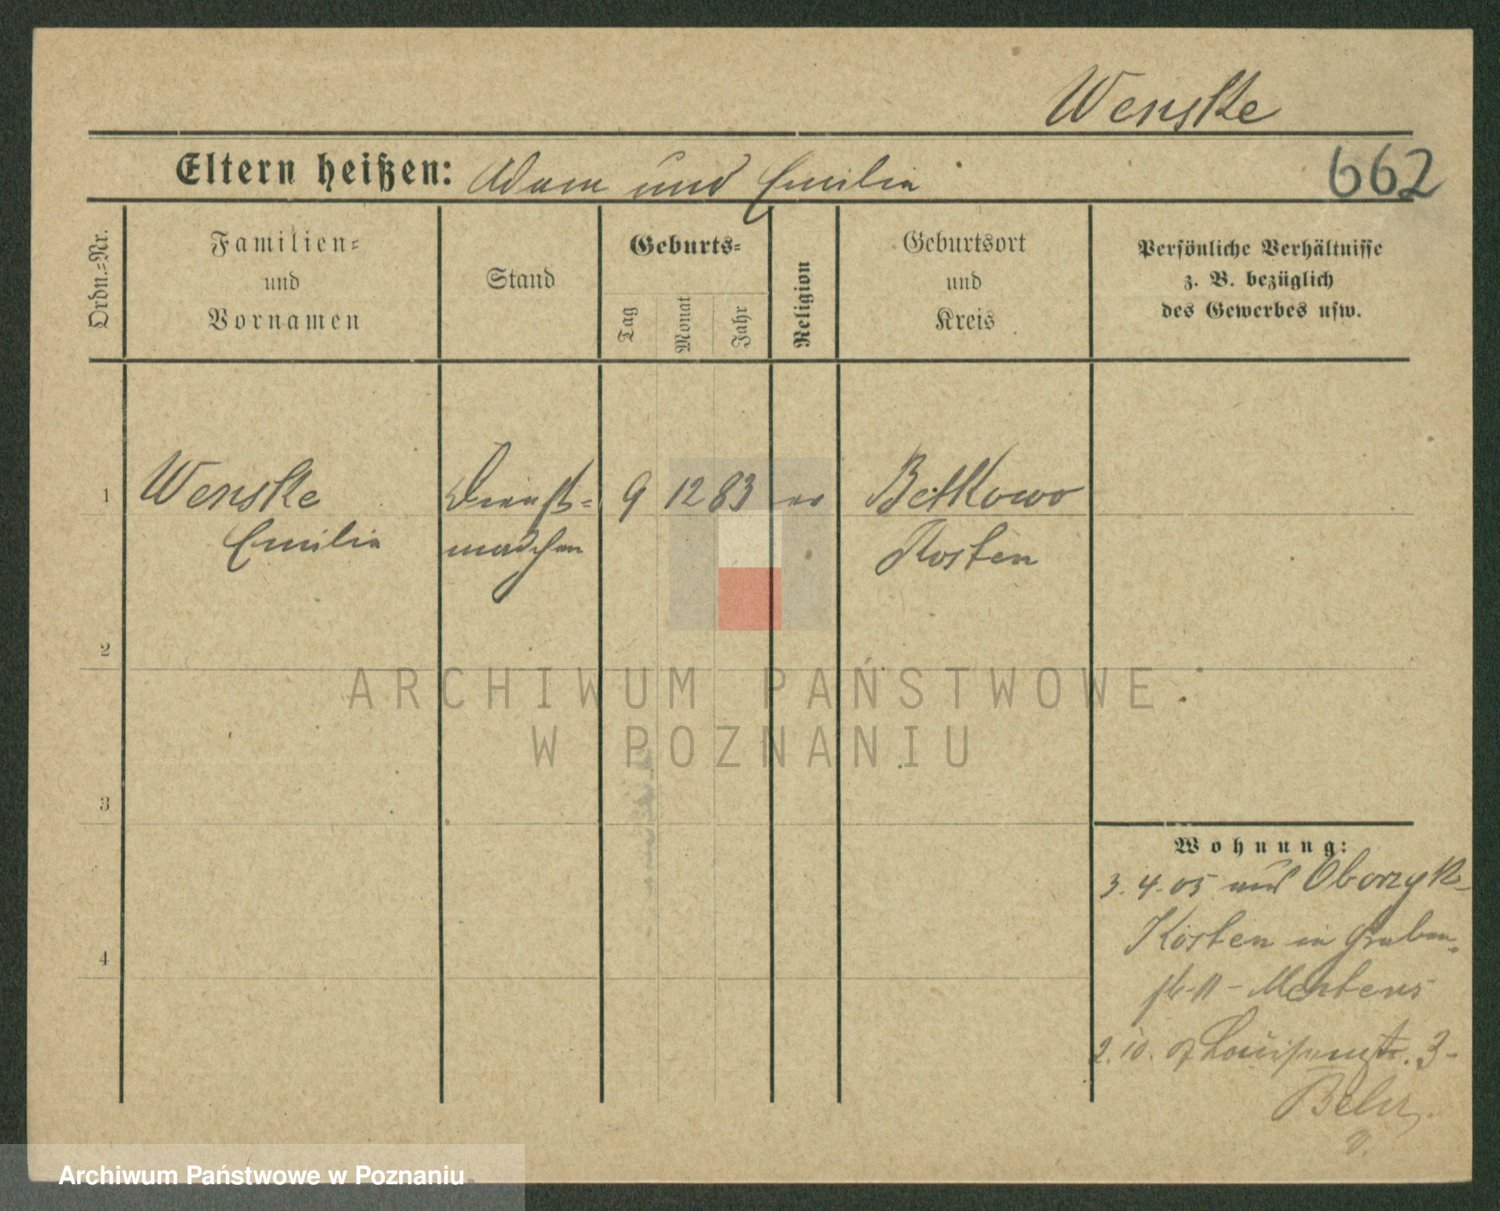 Wenske
Eltern heißen: Adam und Emilia
662
Ordn.=Nr.
Familien=
und
Vornamen
Stand
Geburts=
Tag
Monat
Jahr
Religion
Geburtsort
und
Kreis
Persönliche Verhältnisse
z. B. bezüglich
des Gewerbes usw.
1
Wenske
Emilia
Dienst=
mädchen
9 12 83
Betkowo
Kosten
2
ARCHIWUM PAŃSTWOWE
W POZNANIU
3
4
Wohnung:
3. 4. 05 aus
Kosten in Graben=
str. 11 - Mertens
2. 10. Louisenstr. 3-
Behr.
Archiwum Państwowe w Poznaniu